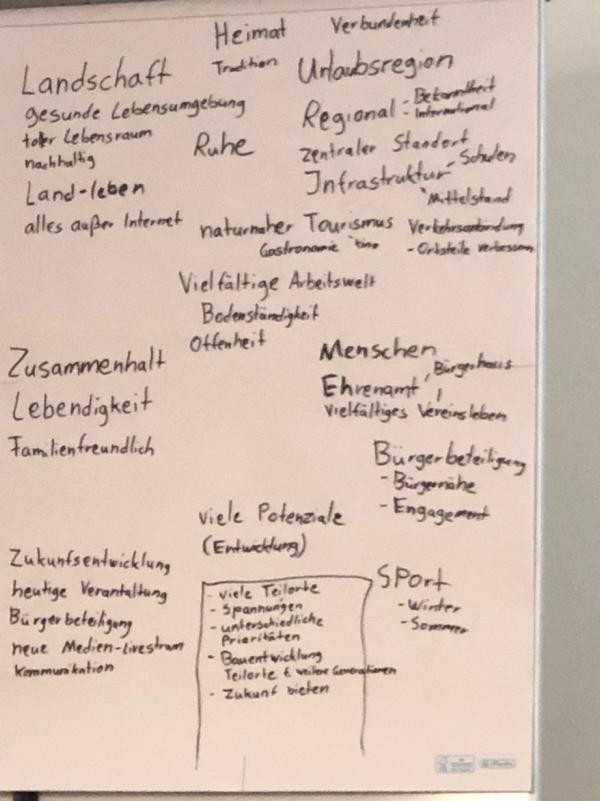 Heimat
Verbundenheit
Tradition
Landschaft
gesunde Lebensumgebung
toller Lebensraum
nachhaltig
Land-leben
alles außer Internet
Ruhe
Urlaubsregion
Regional
- Bekanntheit
- International
zentraler Standort
Infrastruktur
- Schulen
Mittelstand
Verkehrsanbindung
- Ortsteile verbessern
naturnaher Tourismus
Gastronomie
Vielfältige Arbeitswelt
Bodenständigkeit
Offenheit
Zusammenhalt
Lebendigkeit
Familienfreundlich
Menschen
Ehrenamt
Bürgerhaus
Vielfältiges Vereinsleben
Bürgerbeteiligung
- Bürgernähe
- Engagement
viele Potenziale
(Entwicklung)
Zukunfsentwicklung
heutige Verantaltung
Bürgerbeteiligung
neue Medien-Livestram
Kommunikation
- viele Teilorte
- Spannungen
- unterschiedliche
Prioritäten
- Bauentwicklung
Teilorte f. weitere Generationen
- Zukunf bieten
SPort
- Winter
- Sommer